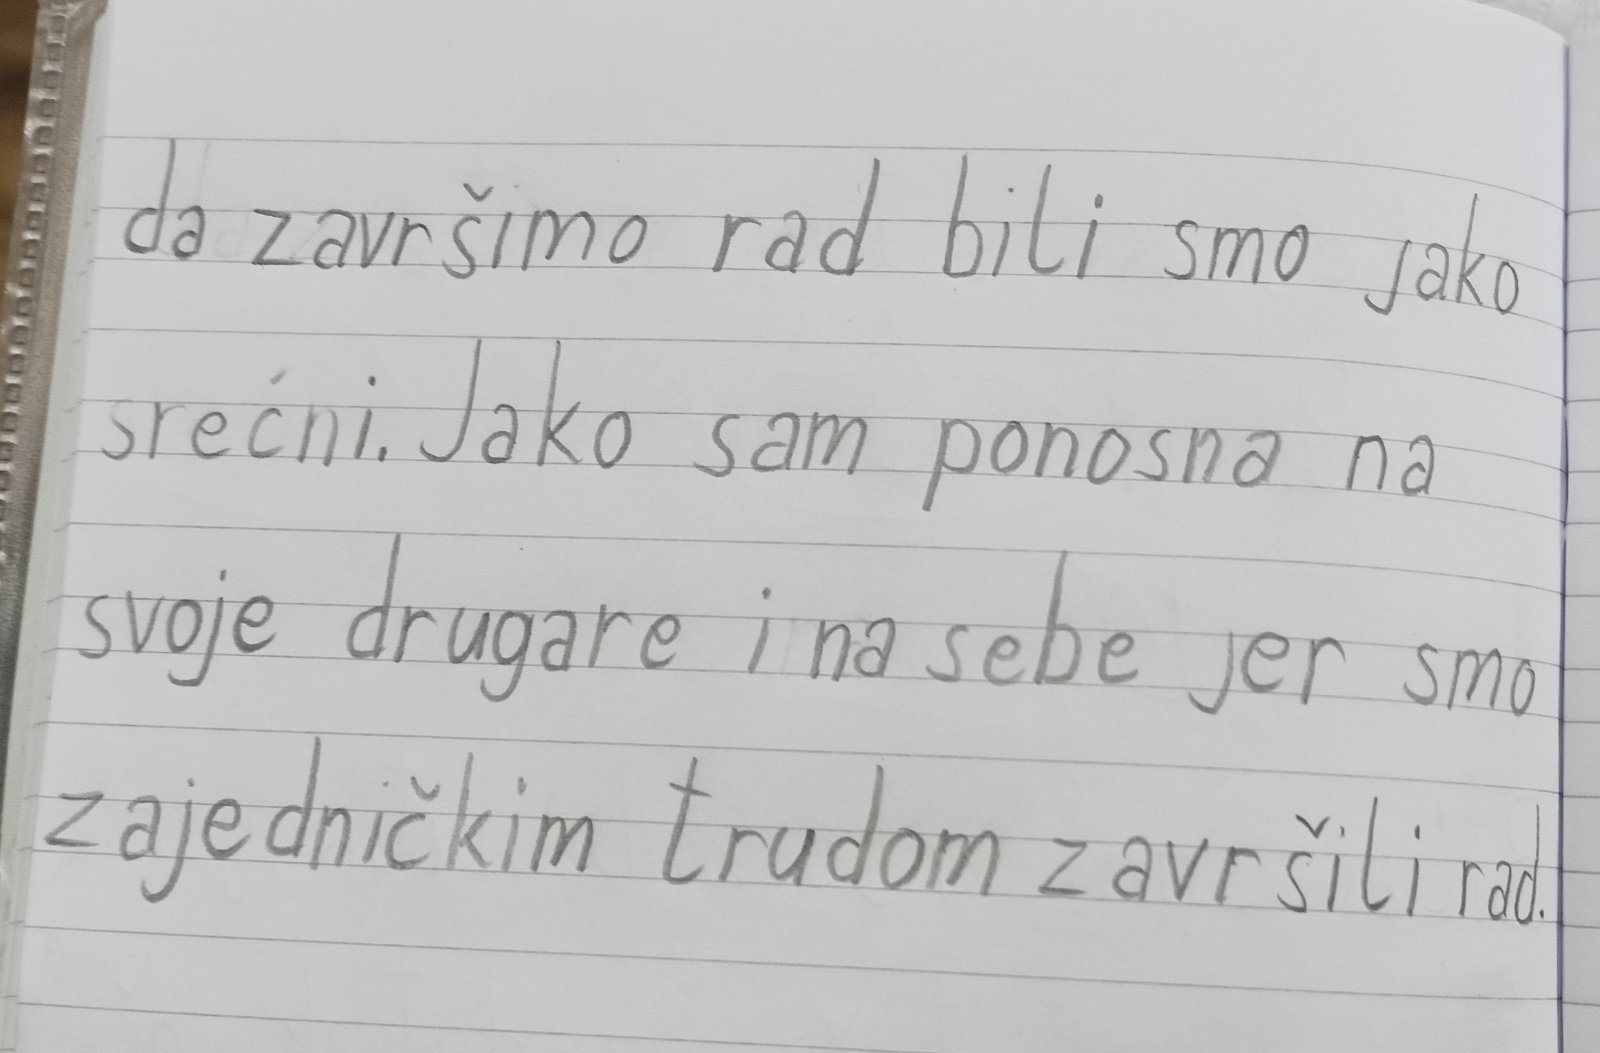 da završimo rad bili smo jako
srećni. Jako sam ponosna na
svoje drugare i na sebe jer smo
zajedničkim trudom završili rad.